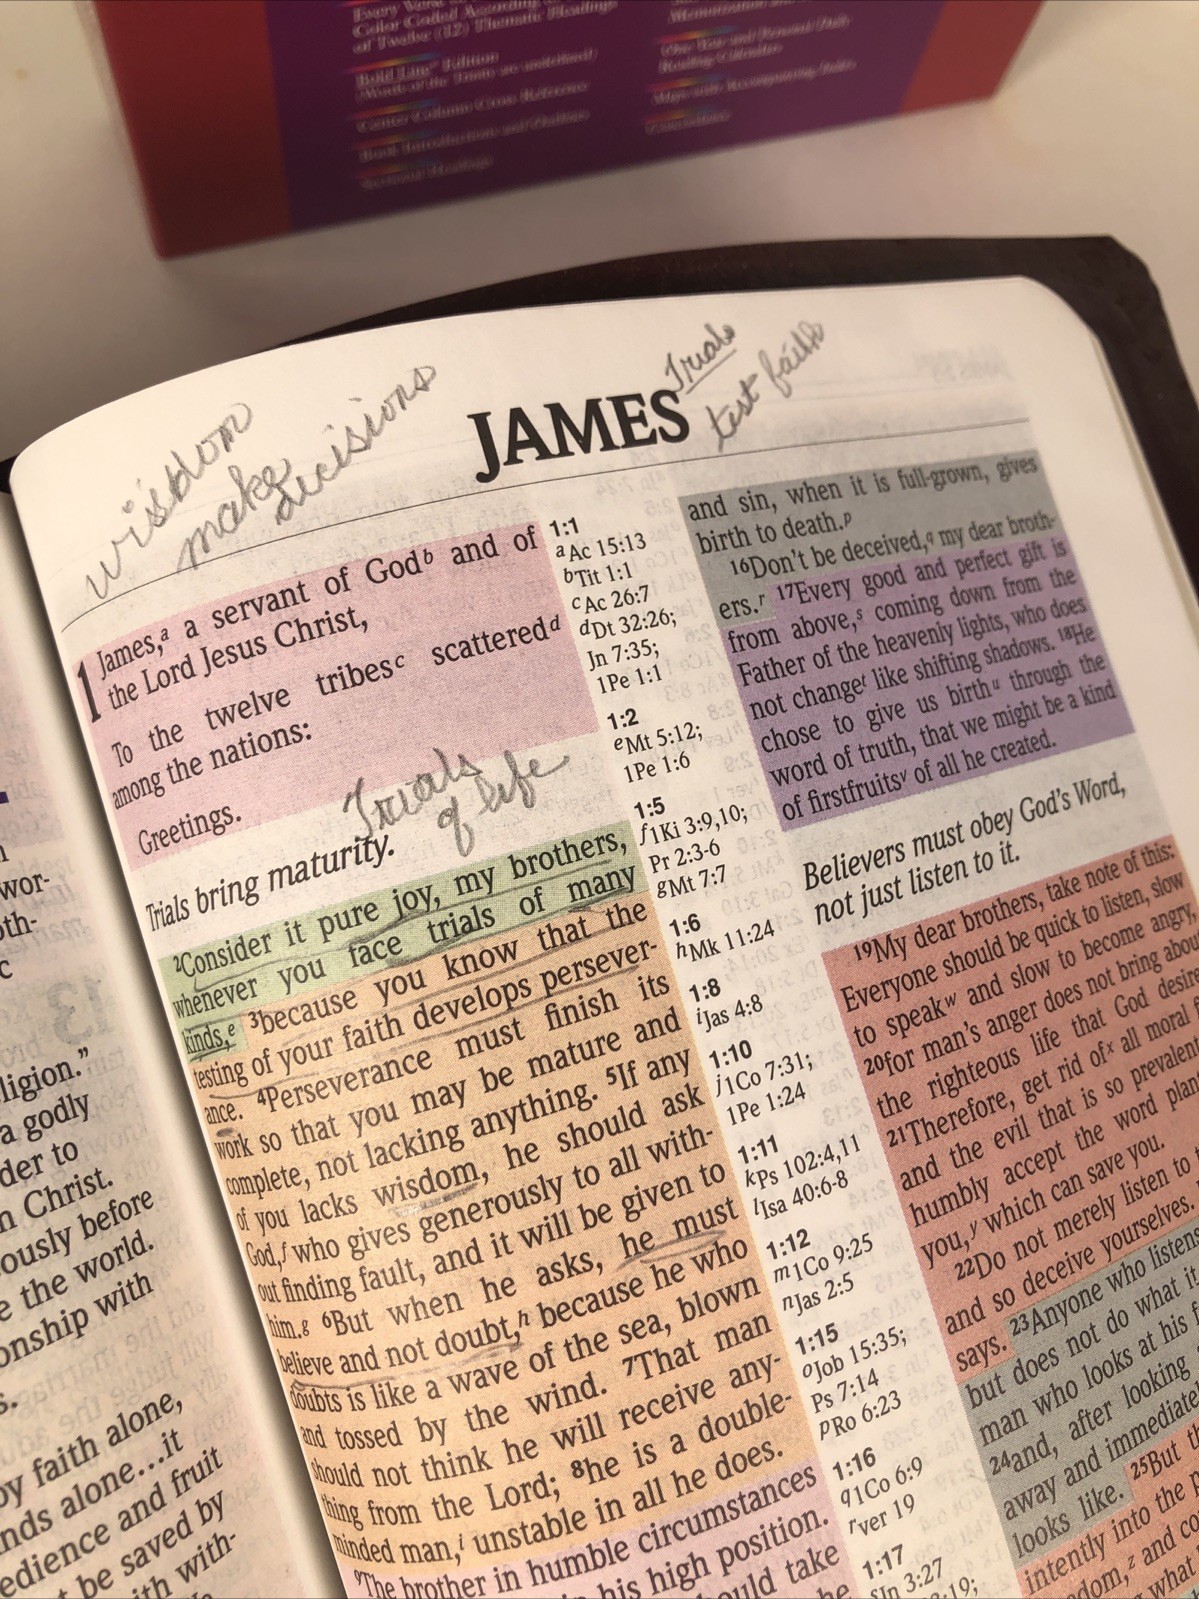 Every Verse
Color Coded According
of Twelve (12) Thematic Headings
Bold Line Edition
(Words of the Trinity are underlined)
Center Column Cross Reference
Book Introductions and Outlines
Sectional Headings
Memorization
One Year and Personal Daily
Reading Calendars
Maps with Accompanying Index
Concordance
wisdom
make
decisions
JAMES
Trials
test faith
1 James,a a servant of Godb and of
the Lord Jesus Christ,
To the twelve tribesc scatteredd
among the nations:
Greetings.
Trials
of life
Trials bring maturity.
2Consider it pure joy, my brothers,
whenever you face trials of many
kinds,e 3because you know that the
testing of your faith develops persever-
ance. 4Perseverance must finish its
work so that you may be mature and
complete, not lacking anything. 5If any
of you lacks wisdom, he should ask
God,f who gives generously to all with-
out finding fault, and it will be given to
him.g 6But when he asks, he must
believe and not doubt,h because he who
doubts is like a wave of the sea, blown
and tossed by the wind. 7That man
should not think he will receive any-
thing from the Lord; 8he is a double-
minded man,i unstable in all he does.
9The brother in humble circumstances
his high position.
take
1:1
aAc 15:13
bTit 1:1
cAc 26:7
dDt 32:26;
Jn 7:35;
1Pe 1:1
1:2
eMt 5:12;
1Pe 1:6
1:5
f1Ki 3:9,10;
Pr 2:3-6
gMt 7:7
1:6
hMk 11:24
1:8
iJas 4:8
1:10
j1Co 7:31;
1Pe 1:24
1:11
kPs 102:4,11
lIsa 40:6-8
1:12
m1Co 9:25
nJas 2:5
1:15
oJob 15:35;
Ps 7:14
pRo 6:23
1:16
q1Co 6:9
rver 19
1:17
sJn 3:27
and sin, when it is full-grown, gives
birth to death.p
16Don't be deceived,q my dear broth-
ers.r 17Every good and perfect gift is
from above,s coming down from the
Father of the heavenly lights, who does
not changet like shifting shadows. 18He
chose to give us birthu through the
word of truth, that we might be a kind
of firstfruitsv of all he created.
Believers must obey God's Word,
not just listen to it.
19My dear brothers, take note of this:
Everyone should be quick to listen, slow
to speakw and slow to become angry,
20for man's anger does not bring about
the righteous life that God desire
21Therefore, get rid ofx all moral
and the evil that is so prevalent
humbly accept the word plan
you,y which can save you.
22Do not merely listen to
and so deceive yourselves.
says. 23Anyone who listens
but does not do what it
man who looks at his f
24and, after looking
away and immediate
looks like. 25But th
intently into the p
dom,z and co
what
wor-
oth-
ligion."
a godly
der to
n Christ.
ously before
e the world.
onship with
s.
by faith alone,
nds alone…it
edience and fruit
t be saved by
ith with-